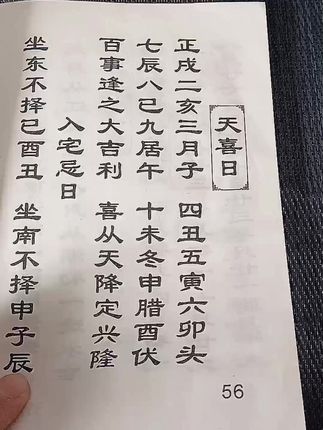 天喜日
正戌二亥三月子 四丑五寅六卯头
七辰八已九居午 十未冬申腊酉伏
百事逢之大吉利 喜从天降定兴隆
入宅忌日
坐东不择已酉丑 坐南不择申子辰
56